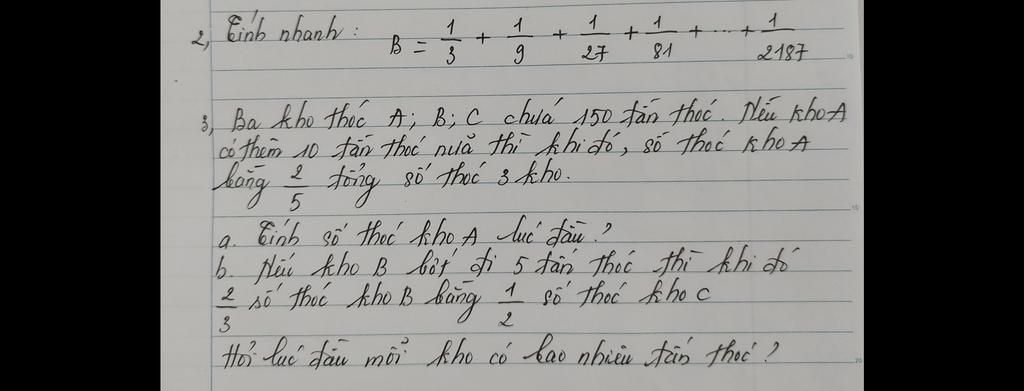 2, Tính nhanh: B = 1/3 + 1/9 + 1/27 + 1/81 + ... + 1/2187
3, Ba kho thóc A; B; C chứa 150 tấn thóc. Nếu kho A
có thêm 10 tấn thóc nữa thì khi đó, số thóc kho A
bằng 2/5 tổng số thóc 3 kho.
a. Tính số thóc kho A lúc đầu?
b. Nếu kho B bớt đi 5 tấn thóc thì khi đó
2/3 số thóc kho B bằng 1/2 số thóc kho C
Hỏi lúc đầu mỗi kho có bao nhiêu tấn thóc?